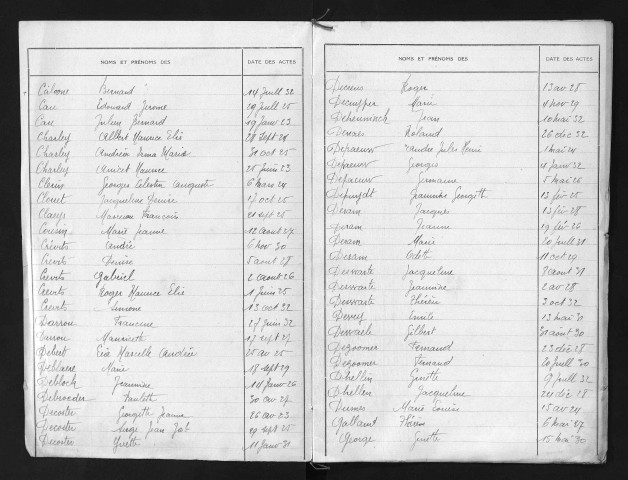 NOMS ET PRÉNOMS DES DATE DES ACTES
Bernard 14 Juill 32
Cau Edouard Jerome 29 Juill 25
Cau Julien Bernard 19 Janv 23
Charley Albert Maurice Elie 28 Sept 24
Charley Andréa Irma Maria 31 oct 25
Charley Anicet Maurice 25 Juin 23
Georges Celestin August 6 mars 24
Clouet Jacqueline Denise 17 oct 25
Claeys Marceau François 21 sept 25
Marie Jeanne 12 aout 27
Crévits André 6 nov 30
Crevits Denise 5 aout 28
Crevits Gabriel 2 aout 26
Crevits Roger Maurice Elie 1 juin 25
Crevits Simone 13 oct 32
Darron Francine 27 Juin 32
Mauricette 17 sept 27
Debert Eva Marcelle Andrée 25 av 25
Deblaere Marie 18 sept 29
Deblock Jeannine 14 Janv 26
Debroeder Paulette 30 av 27
Decoster Georgette Jeanne 26 av 23
Decoster Serge Jean 29 sept 25
Decoster Yvette 11 Janv 31
NOMS ET PRÉNOMS DES DATE DES ACTES
Roger 13 av 28
Decuyper Marie 4 nov 29
Jean 10 mai 32
Roland 26 dec 32
Depaeuw Jules René 1 mai 24
Depaeuw Georges 4 Janv 32
Depaeuw Germaine 5 mai 26
Jeannine Georgette 13 fev 25
Deram Jacques 13 fev 28
Deram Jeanne 19 fev 26
Deram Marie 20 Juill 31
Deram Odette 11 oct 29
Deswarte Jacqueline 3 aout 31
Deswarte Jeannine 2 av 28
Deswarte Thérèse 3 oct 32
Emile 13 mai 31
Dewaele Gilbert 31 août 30
Dezoomer Fernand 23 déc 28
Dezoomer Fernand 20 Juill 30
Dhellin Ginette 9 Juill 32
Dhellin Jacqueline 20 déc 28
Dumez Marie Louise 15 av 24
Gallant Thérèse 6 mai 27
George Ginette 15 mai 30